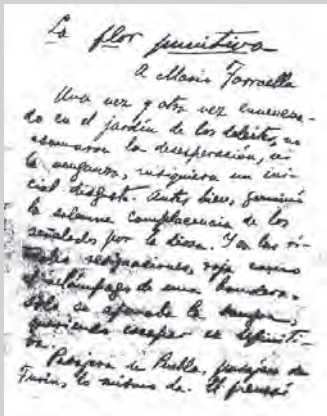 La flor punitiva
A Mario Torroella
Una vez y otra vez envenena-
do en el jardín de los deleites, no
asomaron la desesperación, ni
la venganza, ni siquiera un ini-
cial disgusto. Antes bien, germinó
la solemne complacencia de los
señalados por la diosa. Y en las vi-
riles resignaciones, roja como
relámpago de una bandera,
sólo se afanaba la sangre,
queriendo escapar en definiti-
va.
Pasajera de Puebla, pasajera de
Turín, lo mismo da.